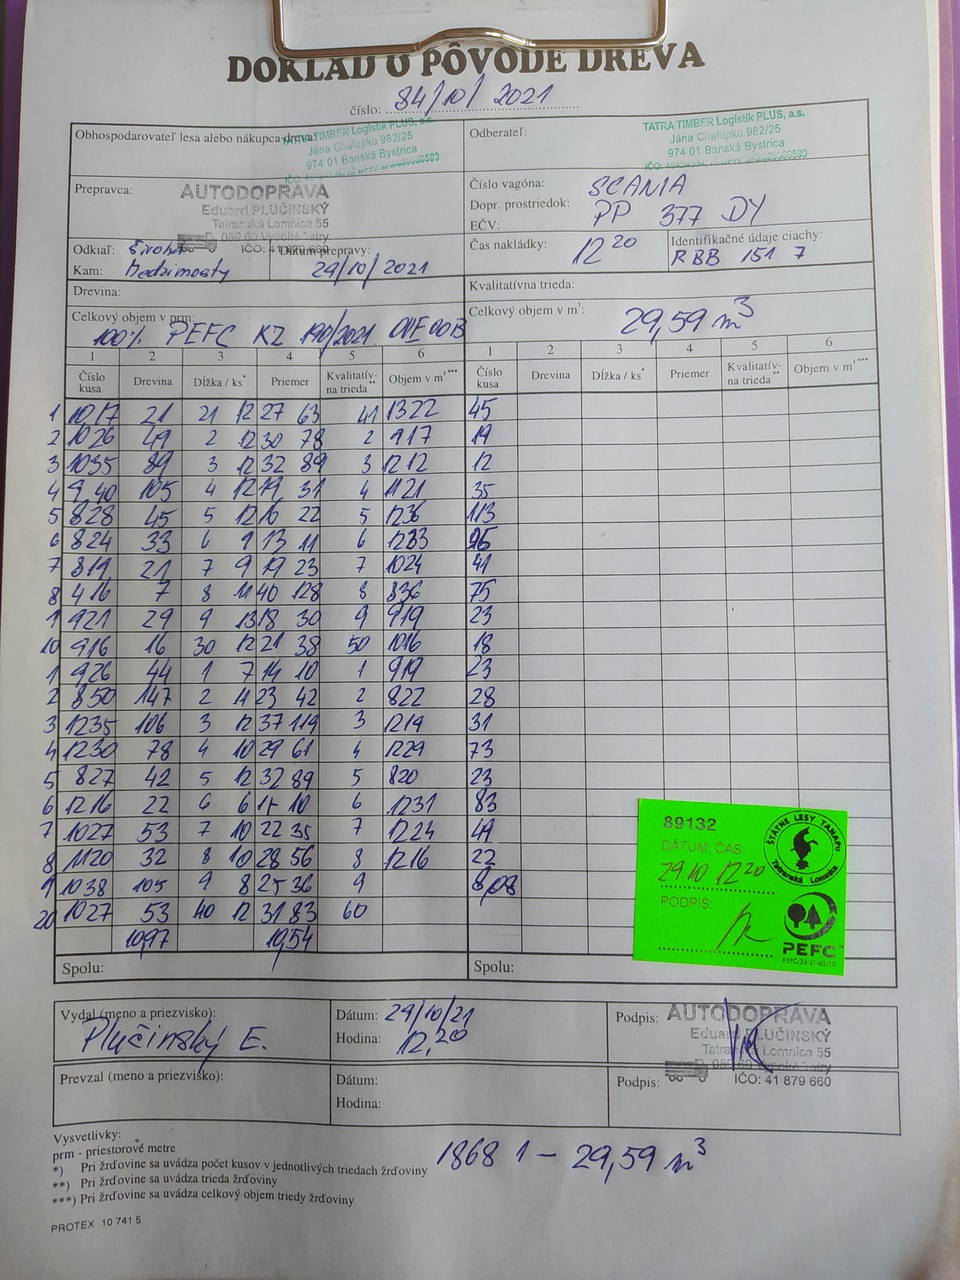 DOKLAD O PÔVODE DREVA
číslo: 84/10/2021
Obhospodarovateľ lesa alebo nákupca dreva:
TATRA TIMBER Logistik PLUS, a.s.
Jána Chalupku 982/25
974 01 Banská Bystrica
Odberateľ:
TATRA TIMBER Logistik PLUS, a.s.
Jána Chalupku 982/25
974 01 Banská Bystrica
Prepravca:
AUTODOPRAVA
Eduard PLUČINSKÝ
Tatranská Lomnica 55
059 60 Vysoké Tatry
IČO: 41 879 660
Číslo vagóna: SCANIA
Dopr. prostriedok:
EČV: PP 377 DY
Odkiaľ:
Kam: Medzimosty
Dátum prepravy:
29/10/2021
Čas nakládky: 12 20
Identifikačné údaje ciachy:
RBB 151 7
Drevina:
Kvalitatívna trieda:
Celkový objem v prm:
100% PEFC KZ 190/2021
Celkový objem v m³: 29,59 m³
1 2 3 4 5 6 1 2 3 4 5 6
Číslo kusa Drevina Dĺžka / ks* Priemer Kvalitatív-na trieda** Objem v m³*** Číslo kusa Drevina Dĺžka / ks* Priemer Kvalitatív-na trieda** Objem v m³***
1 1017 21 21 12 27 63 41 1322 45
2 1026 49 2 12 30 78 2 917 19
3 1035 89 3 12 32 89 3 1212 12
4 9 40 105 4 12 19 31 4 1121 35
5 828 45 5 12 16 22 5 1236 113
6 824 33 6 9 13 11 6 1233 95
7 819 21 7 9 19 23 7 1024 41
8 416 7 8 11 40 128 8 836 75
1 921 29 9 13 18 30 9 919 23
10 916 16 30 12 21 38 50 1016 18
1 926 44 1 7 14 10 1 919 23
2 850 147 2 11 23 42 2 822 28
3 1235 106 3 12 37 119 3 1219 31
4 1230 78 4 10 29 61 4 1229 73
5 827 42 5 12 32 89 5 820 23
6 1216 22 6 6 15 10 6 1231 83
7 1027 53 7 10 22 35 7 1224 49
8 1120 32 8 10 28 56 8 1216 22
9 1038 105 9 8 25 36 9 8,08
20 1027 53 40 12 31 83 60
10,97 10,54
Spolu: Spolu:
89132
DÁTUM: ČAS:
29.10 12 20
PODPIS:
ŠTÁTNE LESY TANAPu
Tatranská Lomnica
PEFC
Vydal (meno a priezvisko):
Plučinský E.
Dátum: 29/10/21
Hodina: 12,20
Podpis:
AUTODOPRAVA
Eduard PLUČINSKÝ
Tatranská Lomnica 55
059 60 Vysoké Tatry
IČO: 41 879 660
Prevzal (meno a priezvisko):
Dátum:
Hodina:
Podpis:
Vysvetlivky:
prm - priestorové metre
*) Pri žrďovine sa uvádza počet kusov v jednotlivých triedach žrďoviny
**) Pri žrďovine sa uvádza trieda žrďoviny
***) Pri žrďovine sa uvádza celkový objem triedy žrďoviny
1868 1 - 29,59 m³
PROTEX 10 741 5